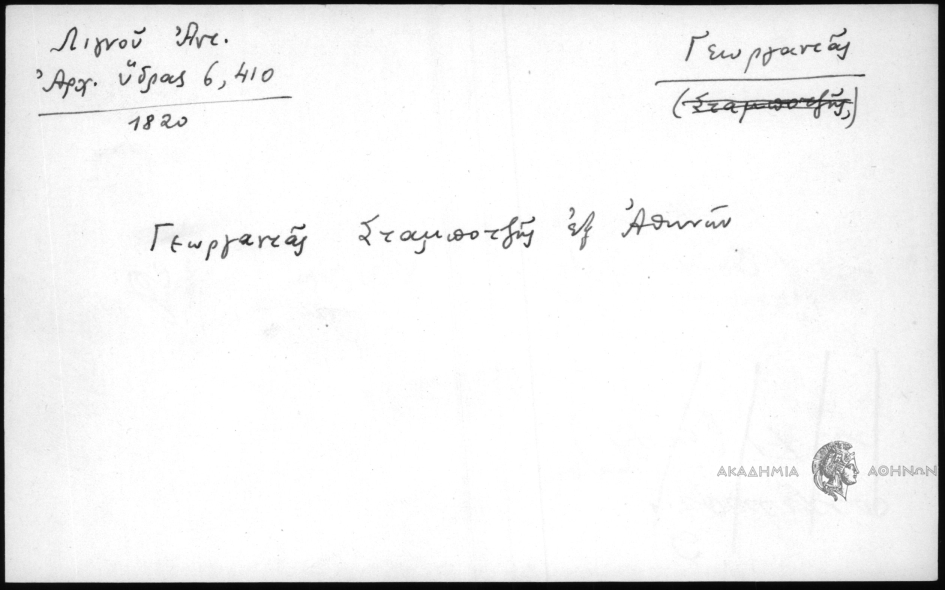 Λιγνοῦ Ἀντ.
Ἀρχ. Ὕδρας 6, 410
1820
Γεωργαντᾶς
(Σταμποτζῆς,)
Γεωργαντᾶς Σταμποτζῆς ἐξ Ἀθηνῶν
ΑΚΑΔΗΜΙΑ ΑΘΗΝΩΝ